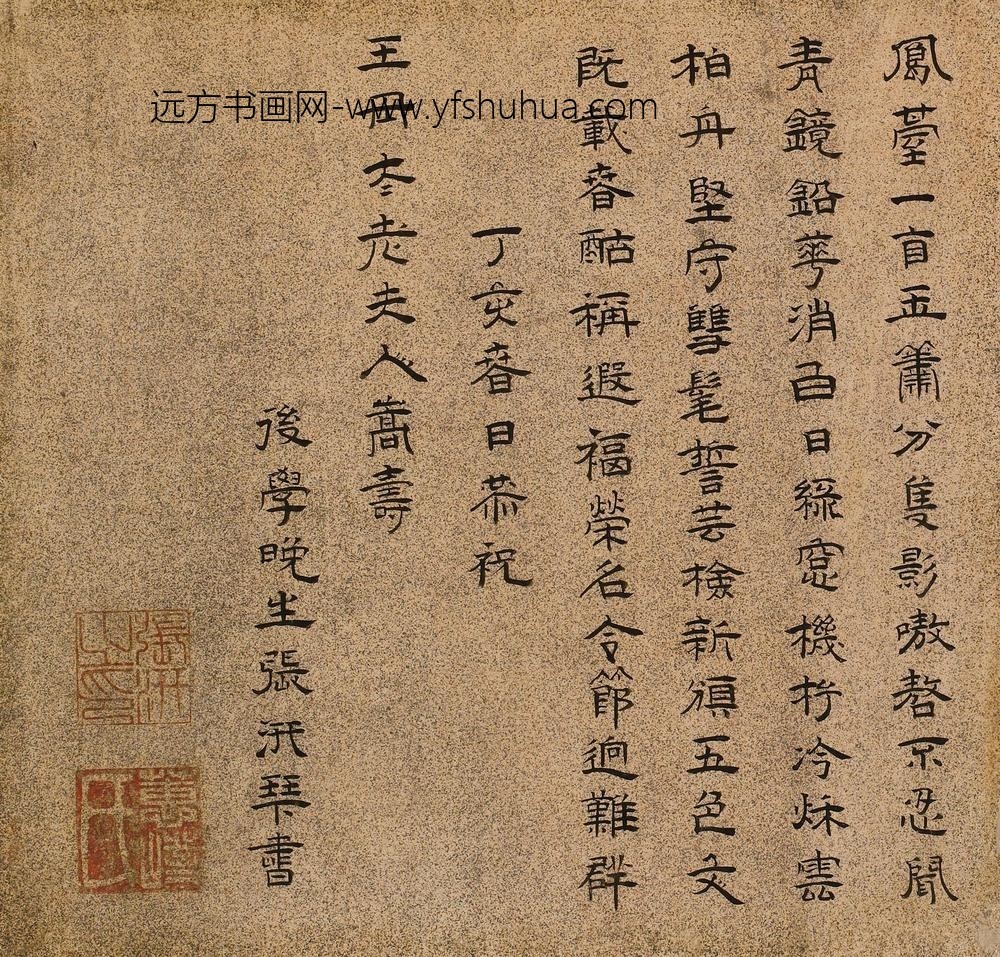 鳳臺一自玉簫分隻影嗷嗸不忍聞
青鏡鉛華消白日綠窓機杼冷秋雲
柏舟堅守雙髦誓芸檢新頒五色文
既載春酤稱遐福榮名令節迥難群
丁亥春日恭祝
王太老夫人嵩壽
後學晚生張汧拜書
張汧之印
远方书画网-www.yfshuhua.com